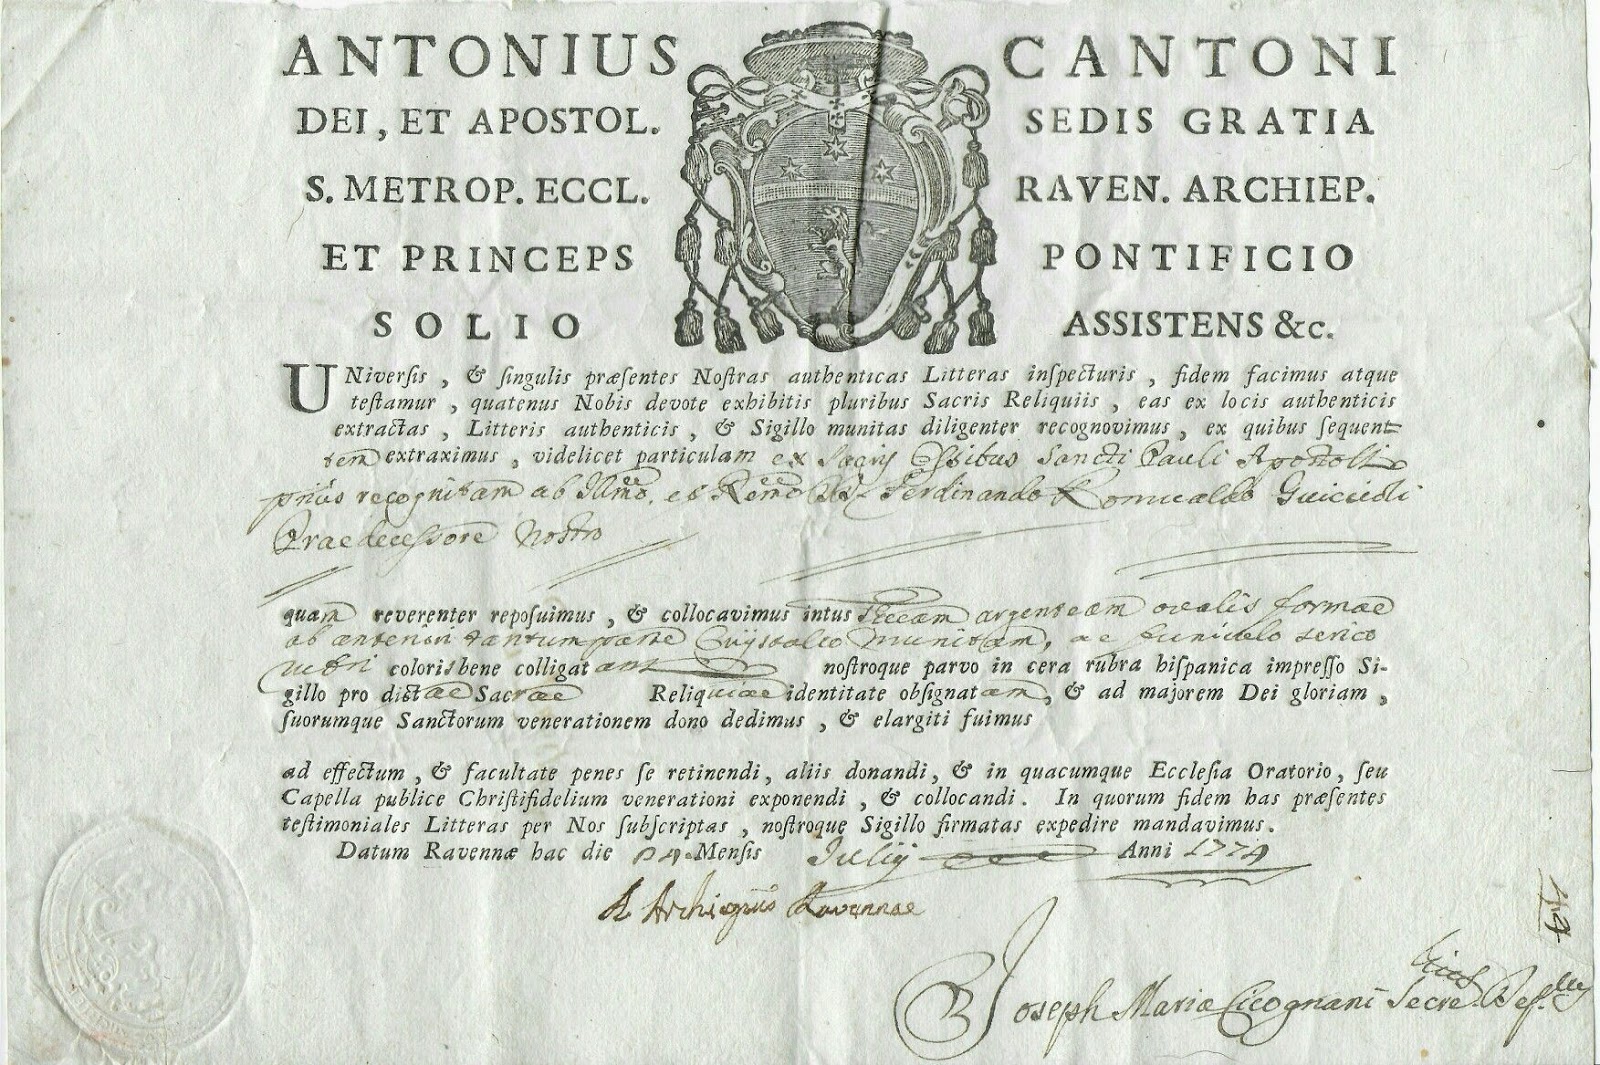 ANTONIUS CANTONI
DEI, ET APOSTOL. SEDIS GRATIA
S. METROP. ECCL. RAVEN. ARCHIEP.
ET PRINCEPS PONTIFICIO
SOLIO ASSISTENS &c.
UNiversis, & singulis præsentes Nostras authenticas Litteras inspecturis, fidem facimus atque
testamur, quatenus Nobis devote exhibitis pluribus Sacris Reliquiis, eas ex locis authenticis
extractas, Litteris authenticis, & Sigillo munitas diligenter recognovimus, ex quibus sequent
tem extraximus, videlicet particulam ex Sacris Ossibus Sancti Pauli Apostoli
prius recognitam ab Illmo. et Rmo Ferdinando Romualdo Guiccioli
Praedecessore Nostro
quam reverenter reposuimus, & collocavimus intus Thecam argenteam ovalis formae
ab anteriori tantum parte Crystallo munitam, ac funiculo serico
rubri coloris bene colligatam nostroque parvo in cera rubra hispanica impresso Si-
gillo pro dictae Sacrae Reliquiae identitate obsignatam, & ad majorem Dei gloriam,
suorumque Sanctorum venerationem dono dedimus, & elargiti fuimus
ad effectum, & facultate penes se retinendi, aliis donandi, & in quacumque Ecclesia Oratorio, seu
Capella publice Christifidelium venerationi exponendi, & collocandi. In quorum fidem has præsentes
testimoniales Litteras per Nos subscriptas, nostroque Sigillo firmatas expedire mandavimus.
Datum Ravennæ hac die Mensis Julij Anni 1774
A Archiepus Ravennae
Joseph Maria Cicognani Secre.